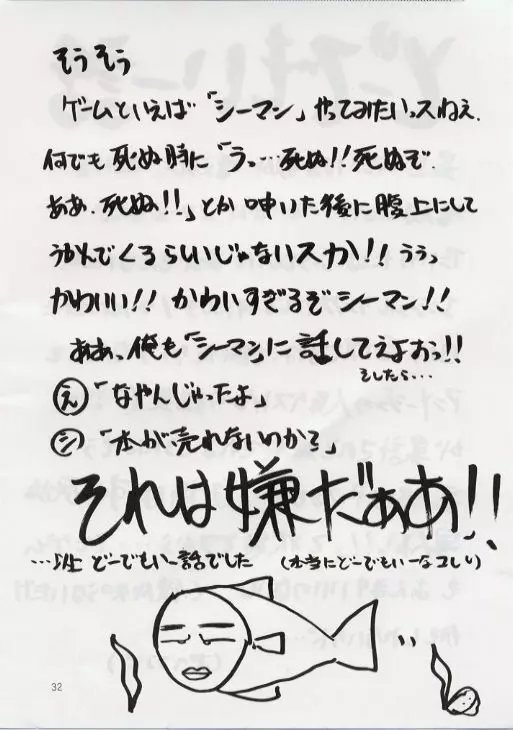 そうそう
ゲームといえば「シーマン」やってみたいっスねえ.
何でも死ぬ時に「うっ…死ぬ!!死ぬぞ
ああ.死ぬ!!」とか呻いた後に腹上にして
うかんでくるらしいじゃないスか!!ううっ
かわいい!!かわいすぎるぞシーマン!!
ああっ俺も「シーマン」に話してえよおっ!!
そしたら…
え「なやんじゃったよ」
シ「本が売れないのか?」
それは嫌だぁあ!!
…以上どーでもいー話でした
(本当にどーでもいーなコレ)
32